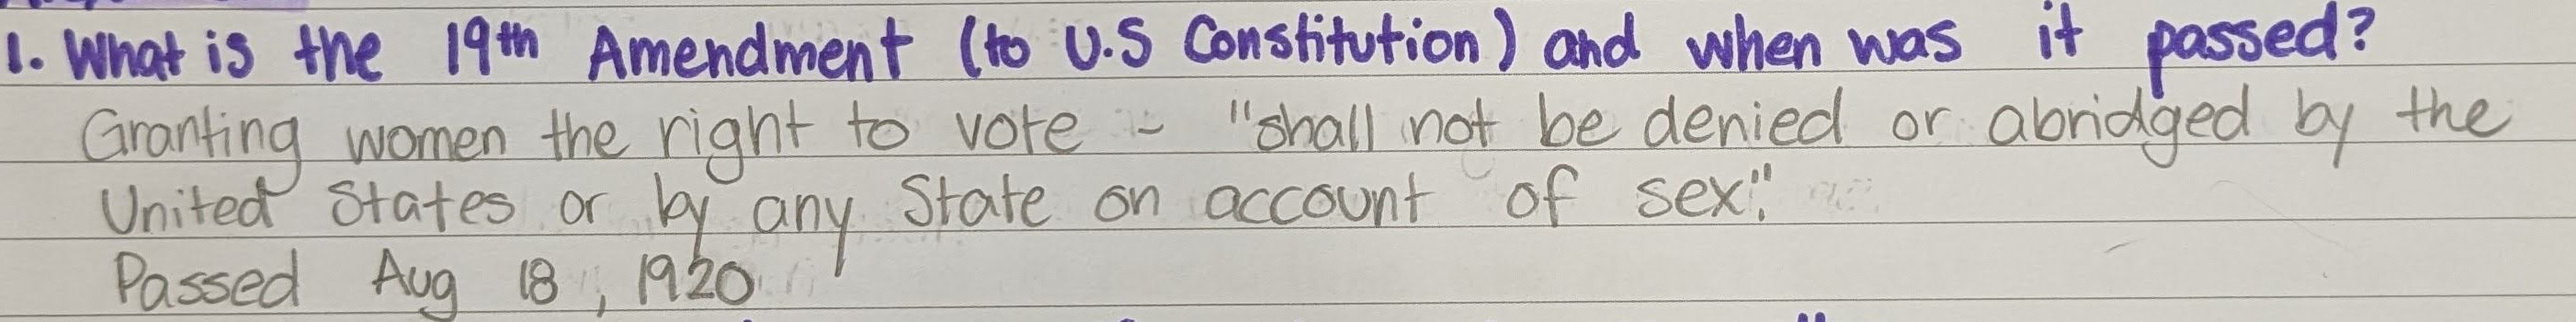 1. What is the 19th Amendment (to U.S Constitution) and when was it passed?
Granting women the right to vote - "shall not be denied or abridged by the
United States or by any State on account of sex."
Passed Aug 18, 1920